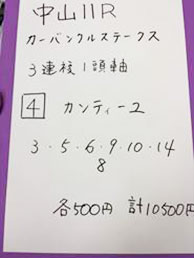 中山11R
カーバンクルステークス
3連複1頭軸
4 カンティーユ
3・5・6・9・10・14
8
各500円 計10500円